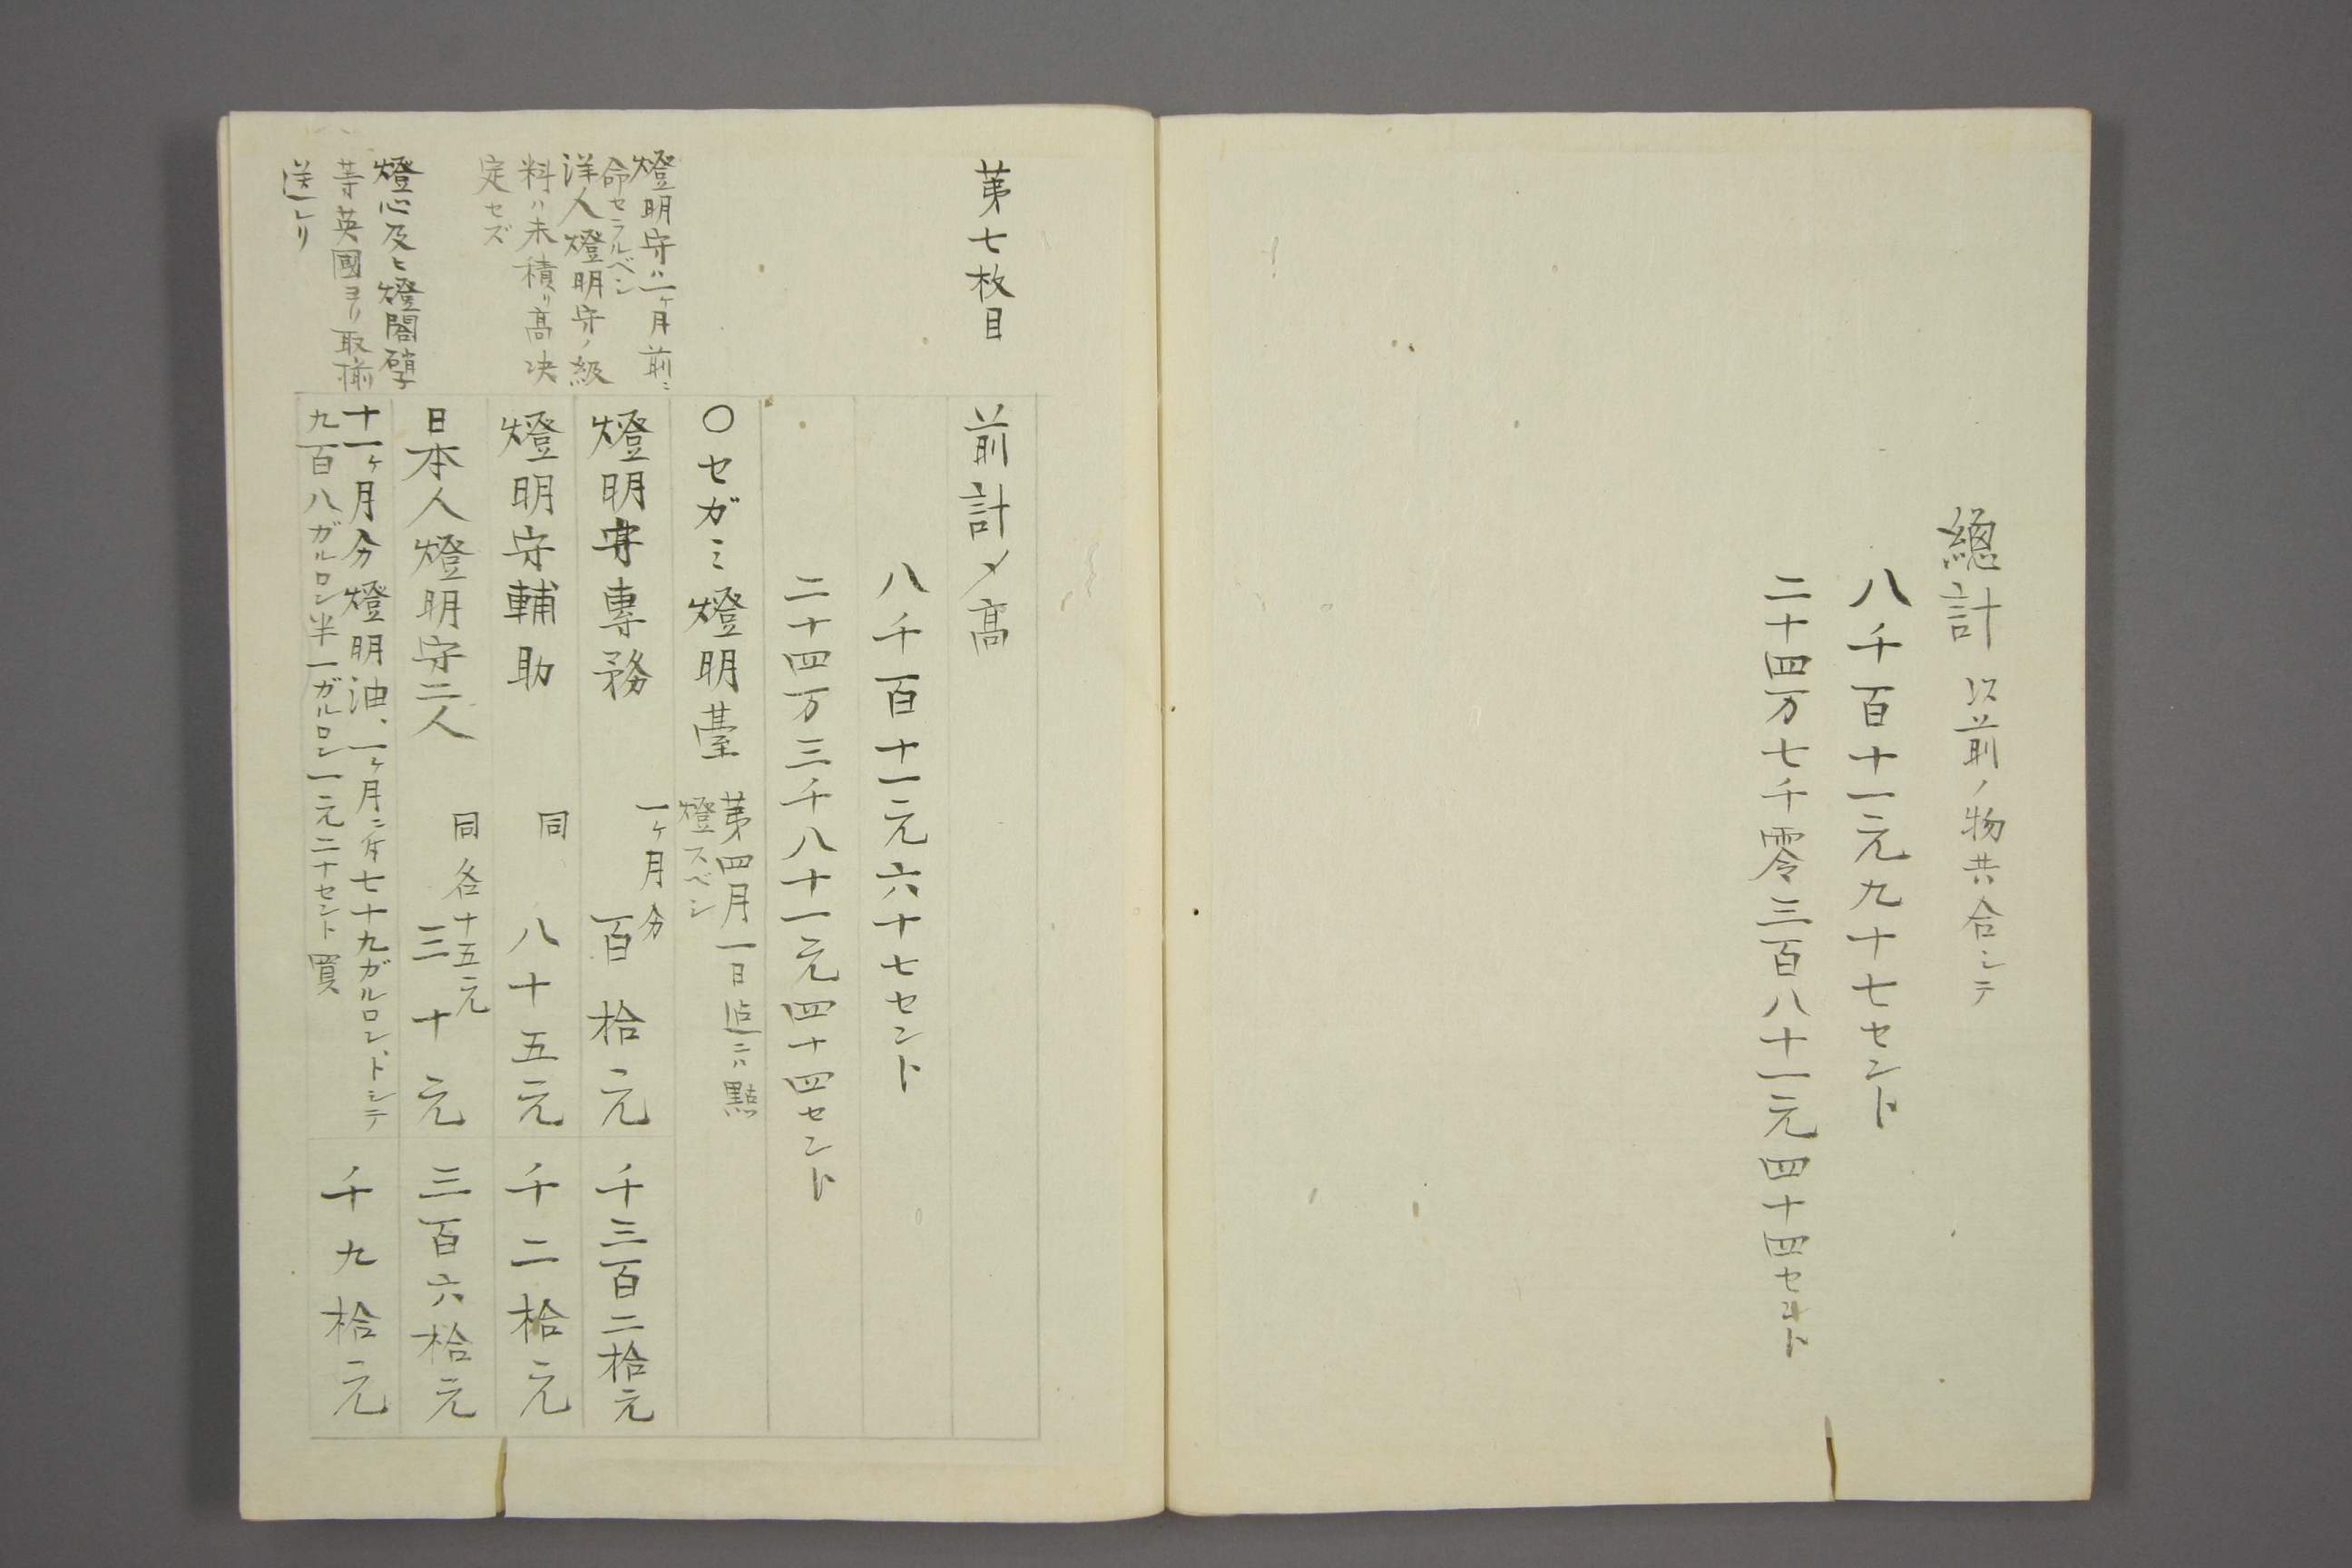 總計 以前ノ物共合シテ
八千百十一元九十七セント
二十四万七千零三百八十一元四十四セント
第七枚目
前計〆高
八千百十一元六十七セント
二十四万三千八十一元四十四セント
〇セガミ燈明臺 第四月一日迄ニハ點
燈スベシ
燈明守ハ一ケ月前ニ
命セラルベシ
洋人燈明守ノ級
料ハ未積リ高决
定セズ
燈明守專務 一ケ月分 百拾元 千三百二拾元
燈明守輔助 同 八十五元 千二拾元
日本人燈明守二人 同各十五元 三十元 三百六拾元
燈心及ヒ燈閣硝子
等英國ヨリ取揃
送レリ
十一ケ月分燈明油、一ケ月ニ付七十九ガルロンドシテ
九百八ガルロン半一ガルロン一元二十セント買 千九拾元